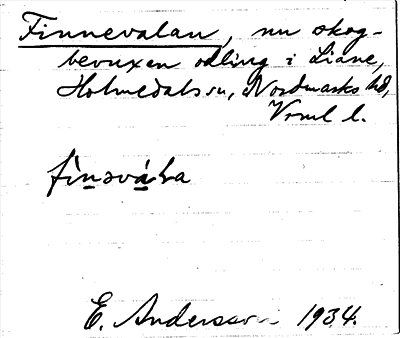 Finnevalan, nu skog-
bevuxen odling i Liane,
Holmedals sn, Nordmarks hd,
Vrml l.
finəvála
E. Andersson 1934.